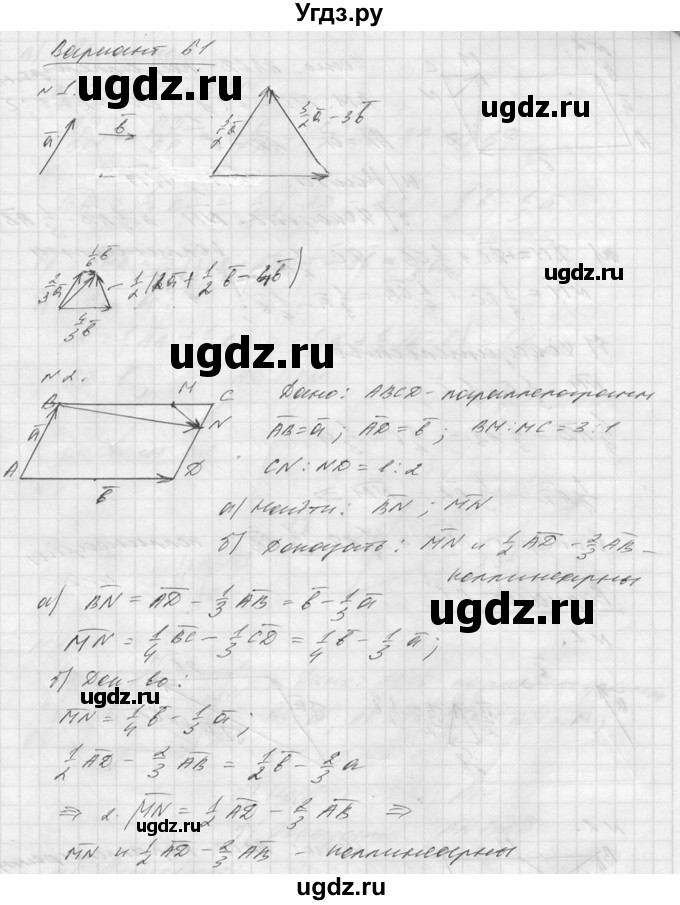 Угдз.ру
Вариант Б1
ugdz.ru
ugdz.ru
N 1.
a̅ b̅ 3/2 a̅ 3/2 a̅ - 3b̅
ugdz.ru
1/6 b̅
2/3 a̅ - 1/2 (2a̅ + 1/2 b̅ - 4b̅)
4/3 b̅
ugdz.ru
N 2.
B M C Дано: ABCD - параллелограмм
a̅ N A̅B̅ = a̅ ; A̅D̅ = b̅ ; BM : MC = 3 : 1
A D CN : ND = 1 : 2
b̅
а) Найти: B̅N̅ ; M̅N̅
б) Доказать: M̅N̅ и 1/2 A̅D̅ - 2/3 A̅B̅ -
коллинеарны
а) B̅N̅ = A̅D̅ - 1/3 A̅B̅ = b̅ - 1/3 a̅
ugdz.ru
M̅N̅ = 1/4 B̅C̅ - 1/3 C̅D̅ = 1/4 b̅ - 1/3 a̅ ;
б) Док-во:
ugdz.ru
M̅N̅ = 1/4 b̅ - 1/3 a̅ ;
1/2 A̅D̅ - 2/3 A̅B̅ = 1/2 b̅ - 2/3 a
⇒ 2 · M̅N̅ = 1/2 A̅D̅ - 2/3 A̅B̅ ⇒
ugdz.ru
M̅N̅ и 1/2 A̅D̅ - 2/3 A̅B̅ - коллинеарны
ugdz.ru